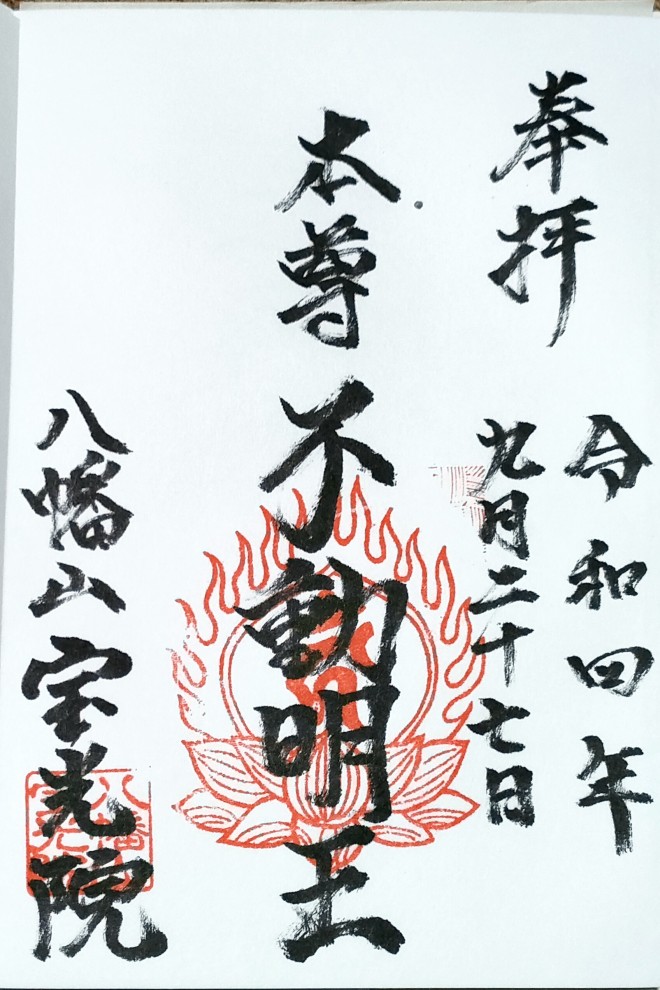 奉拝
令和四年
九月二十七日
本尊 不動明王
八幡山 宝光院